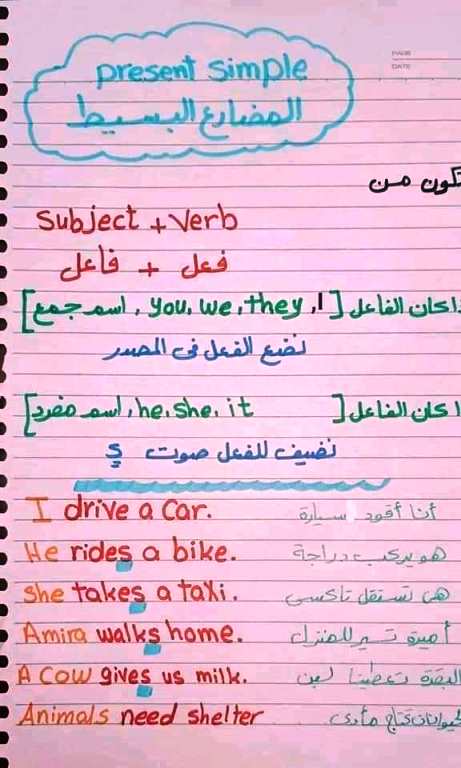 PAGE
DATE
present simple
المضارع البسيط
تكون من
Subject + Verb
فعل + فاعل
ذا كان الفاعل [I, you, we, they, اسم جمع]
نضع الفعل فى المصدر
ا كان الفاعل [he, she, it, اسم مفرد]
نضيف للفعل صوت s
I drive a car. أنا أقود سيارة
He rides a bike. هو يركب دراجة
She takes a taxi. هى تستقل تاكسى
Amira walks home. أميرة تسير للمنزل
A cow gives us milk. البقرة تعطينا لبن
Animals need shelter الحيوانات تحتاج مأوى